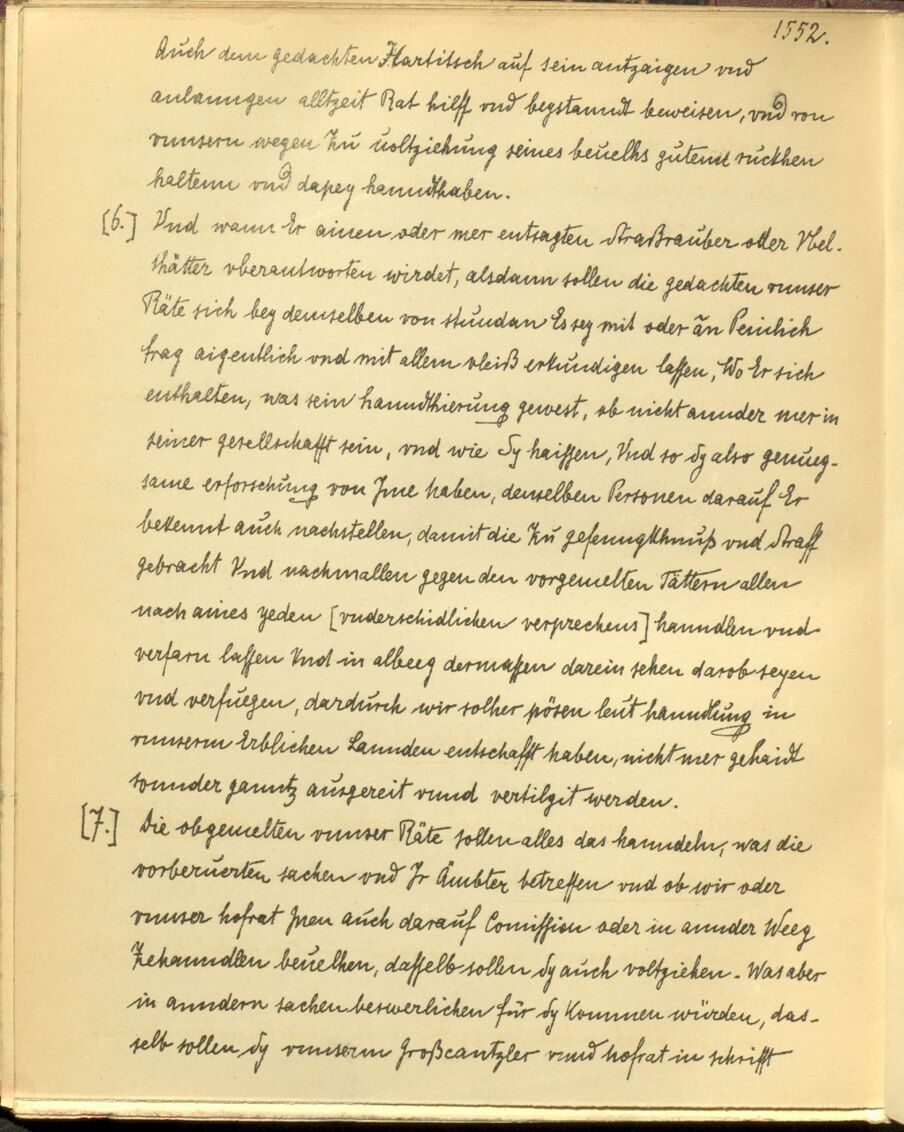 1552.
Auch dem gedachten Hartitsch auf sein antzaigen vnd
anlanngen alltzeit Rat hilff vnd beystanndt beweisen, vnd von
vnnsern wegen Zu uoltziehung seines beuelhs gutenn ruckhen
haltenn vnd dapey hanndthaben.
[6.] Vnd wann Er ainen oder mer entsagten Straßrauber oder Vbel-
thätter vberantworten wirdet, alsdann sollen die gedachten vnnser
Räte sich bey demselben von stundan Es sey mit oder än Peinlich
frag aigentlich vnd mit allem vleiß erkundigen lassen, Wo Er sich
enthalten, was sein hanndthierung gewest, ob nicht annder mer in
seiner gesellschafft sein, vnd wie Sy haissen, Vnd so Sy also genueg-
same erforschung von Jme haben, denselben Personen darauf Er
bekennt auch nachstellen, damit die Zu gefenngkhnuß vnd Straff
gebracht Vnd nachmallen gegen den vorgemelten Tättern allen
nach aines yeden [vnderschidlichen verprechens] hanndlen vnd
verfarn lassen Vnd in albeeg dermassen darein sehen darob seyen
vnd verfuegen, dardurch wir solher pösen leut hanndlung in
vnnserm Erblichen Lannden entschafft haben, nicht mer gehaidt
sonnder ganntz ausgereit vnnd vertilgit werden.
[7.] Die obgemelten vnnser Räte sollen alles das hanndeln, was die
vorberuerten sachen vnd Jr Ämbter betreffen vnd ob wir oder
vnnser hofrat Jnen auch darauf Comission oder in annder Weeg
Zehanndlen beuelhen, dasselb sollen Sy auch voltziehen. Was aber
in anndern sachen beswerlichen für Sy Kommen würden, das-
selb sollen Sy vnnserm Großcantzler vnnd hofrat in schrifft